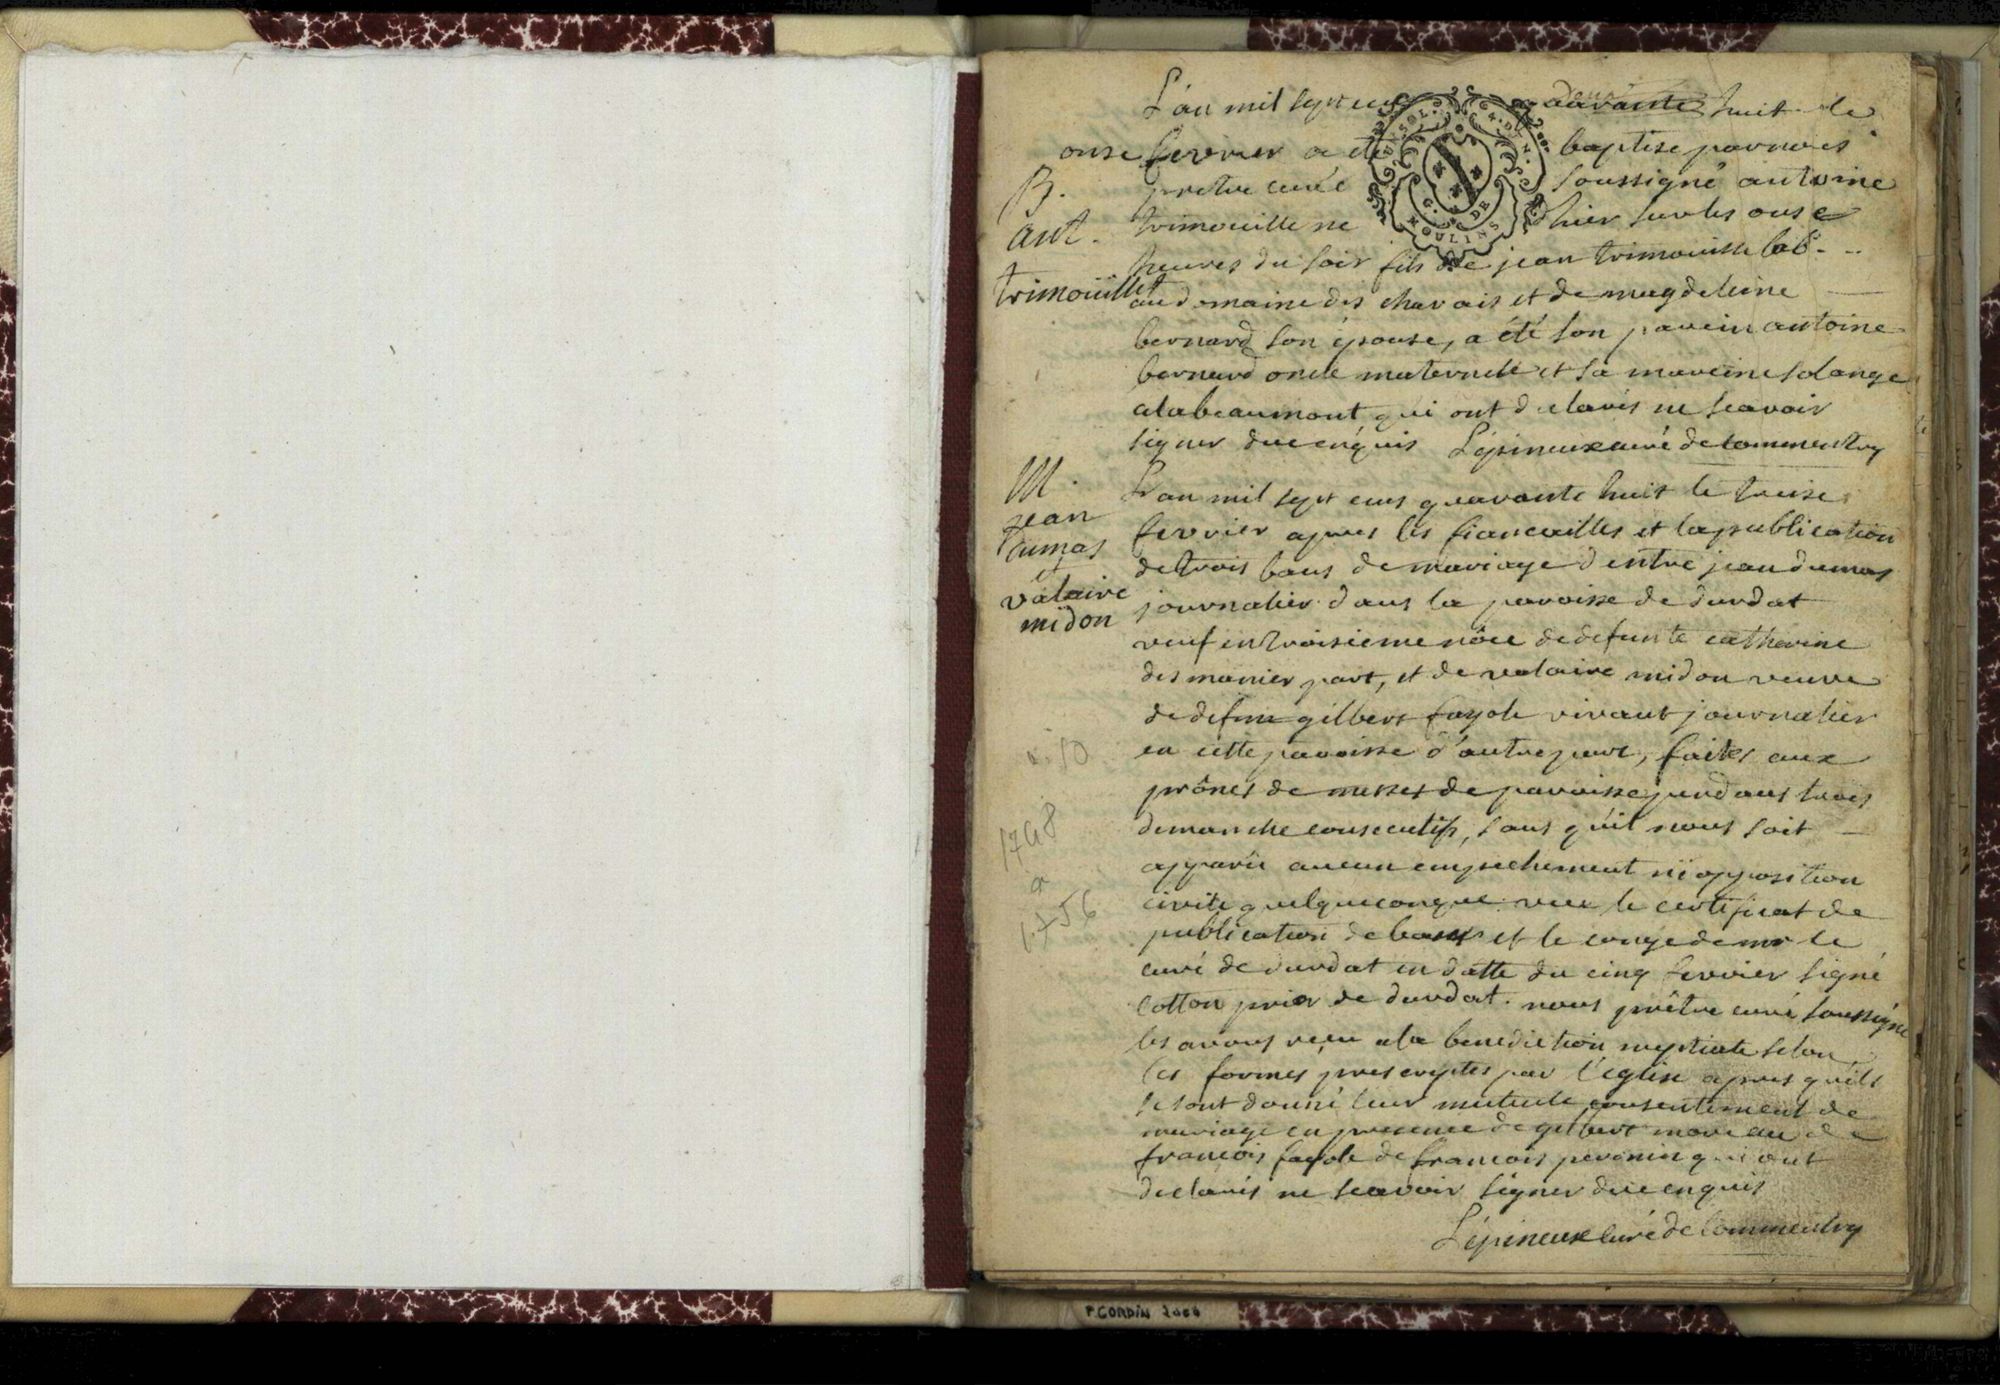 L'an mil sept cens quarante huit le
onze fevrier a été baptise par nous
pretre curé soussigné antoine
trimouille né d'hier sur les onse
heures du soir fils de jean trimouille lab.
au domaine des chavais et de magdeleine
bernard son épouse, a été son parein antoine
bernard oncle maternele et sa mareine solange
alabeaumont qui ont declarés ne scavoir
signer due enquis Lépineux curé de Commentry
B.
ant.
trimouillet
L'an mil sept cens quarante huit le treize
fevrier apres les fiancailles et la publication
de trois bans de mariage d'entre jean dumas
journalier dans la paroisse de durdat
veuf en troisieme nôce de defunte catherine
des manier part, et de valaire midon veuve
de defun gilbert fayole vivant journalier
en cette paroisse d'autre part, faites aux
prônes de messes de paroisse pendans trois
dimanche consecutifs, sans qu'il nous soit
apparu aucun empechement ni opposition
civile quelqueconque. veu le certificat de
publication de bans et le conge de mr le
curé de durdat en datte du cinq fevrier signé
Cotton prior de durdat. nous prêtre curé soussigné
les avons reçu a la benediction nuptiale selon
les formes prescryptes par l'eglise apres quils
se sont donné leur mutuele consentement de
mariage en presence de gilbert moreau de
françois fayole de francois peronin qui ont
declarés ne scavoir signer due enquis
Lépineux curé de Commentry
M.
Jean
Dumas
et
valaire
midon
1748
a
1756
G. DE
MOULINS
P. GORDIN 2000